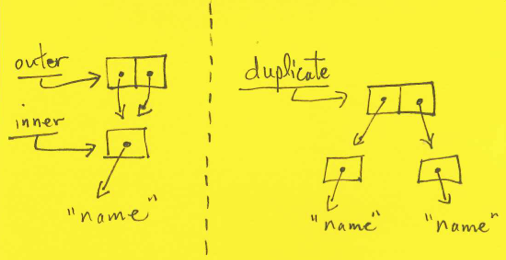 outer
inner
"name"
duplicate
"name"
"name"